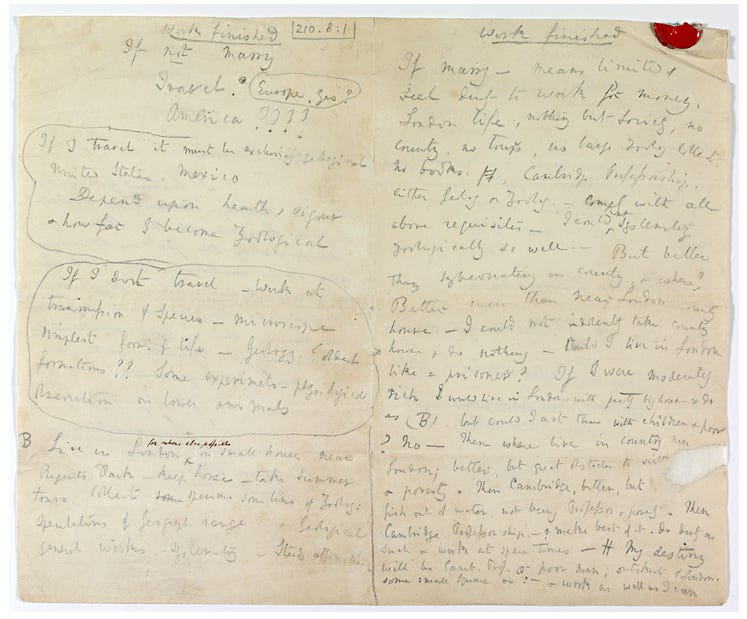 Work finished
210.8:1
If not marry
Travel. Europe, Yes?
America ????
If I travel it must be exclusively geological
United States. Mexico
Depend upon health, vigour
& how far I become Zoological
If I dont travel. — Work at
transmission of Species — Microscope
simplest forms of life — Geology. oldest
formations?? Some experiments — physiological
observation on lower animals
B Live in London for where else possible in small house near
Regents Park — keep horse — take Summer
tours Collect specimens some line of Zoolog:
Speculations of Geograph range & Geological
general works. Systematiz — Study affinities
Work finished
If marry — means limited,
Feel duty to work for money.
London life, nothing but Society, no
country, no tours, no large Zoolog. Collect.
no books. Cambridge Professorship.
either Geolog. or Zoolog. — comply with all
above requisites — I could not systematiz
zoologically so well. — But better
than hybernating in country, & where?
Better even than near London country
house. — I could not indolently take country
house & do nothing — Could I live in London
like a prisoner? If I were moderately
rich I would live in London, with pretty big house & do
as (B). but could I act thus with children & poor
? No — Then where live in country near
London; better, but great obstacles to science
& poverty. Then Cambridge, better, but
fish out of water, not being Professor & poverty. Then
Cambridge Professorship. — & make best of it. do duty as
such & work at spare times — My destiny
will be Camb. Prof. or poor man; outskirts of London.
some small Square &c: — & work as well as I can